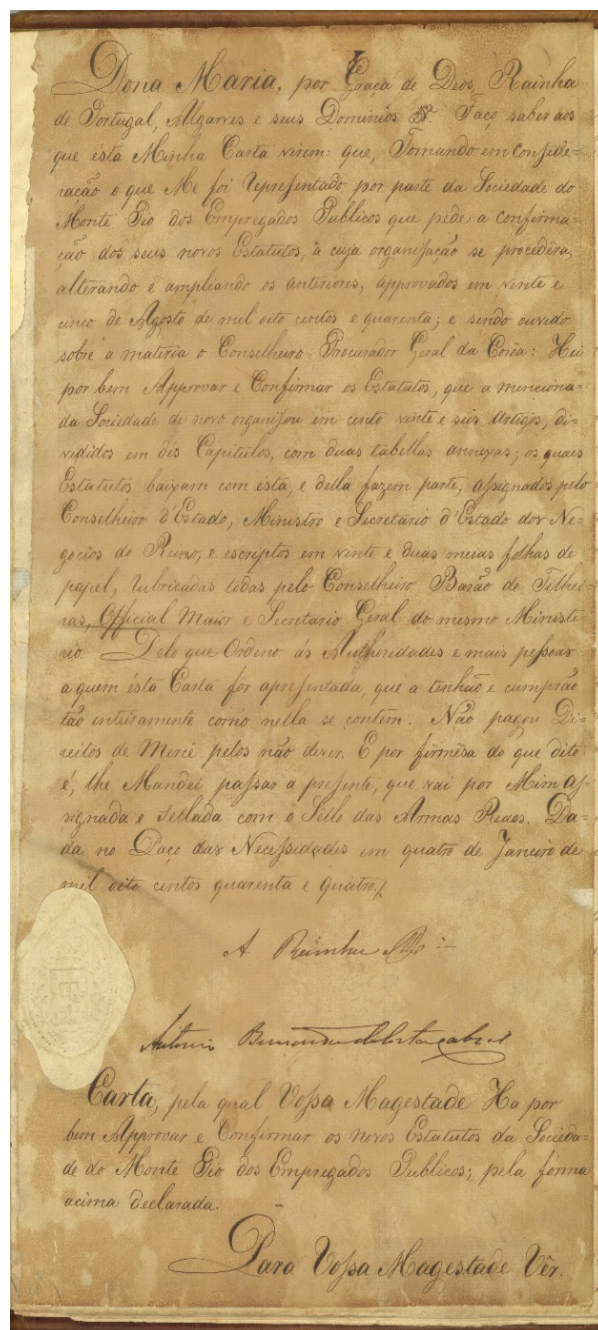 Dona Maria, por Graça de Deos, Rainha
de Portugal, Algarves e seus Dominios &ª Faço saber aos
que esta Minha Carta virem: que, Tomando em conside=
ração o que Me foi representado por parte da Sociedade do
Monte Pio dos Empregados Publicos que pede a confirma=
ção dos seus novos Estatutos, á cuja organisação se procedêra,
alterando e ampliando os anteriores, approvados em vinte e
cinco de Agosto de mil oito centos e quarenta; e sendo ouvido
sobre a materia o Conselheiro Procurador Geral da Corôa: Hei
por bem Approvar e Confirmar os Estatutos, que a menciona=
da Sociedade de novo organisou em cento vinte e seis Artigos, di=
vididos em dés Capitulos, com duas tabellas annexas; os quaes
Estatutos baixam com esta, e della fazem parte, assignados pelo
Conselheiro d'Estado, Ministro e Secretario d'Estado dos Ne=
gocios do Reino, e escriptos em vinte e duas meias folhas de
papel, rubricadas todas pelo Conselheiro Barão de Tilhei=
ras, Official Maior e Secretario Geral do mesmo Ministe=
rio Pelo que Ordeno ás Authoridades e mais pessoas
a quem ésta Carta fôr apresentada, que a tenhão e cumprão
tão inteiramente como nella se contêm. Não pagou Di=
reitos de Mercê pelos não dever. E por firmesa do que dito
é, lhe Mandei passar a presente, que vai por Mim as=
signada e Sellada com o Sello das Armas Reaes. Da=
da no Paço das Necessidades em quatro de Janeiro de
mil oito centos quarenta e quatro./
A Rainha
Antonio Bernardo da Costa Cabral
Carta, pela qual Vossa Magestade Ha por
bem Approvar e Confirmar os novos Estatutos da Socieda=
de do Monte Pio dos Empregados Publicos; pela fórma
acima declarada.
Para Vossa Magestade Vêr.